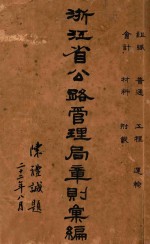 組織 普通 工程 運輸
會計 材料 附載
浙江省公路管理局章則彙編
陳體誠題
二十二年八月